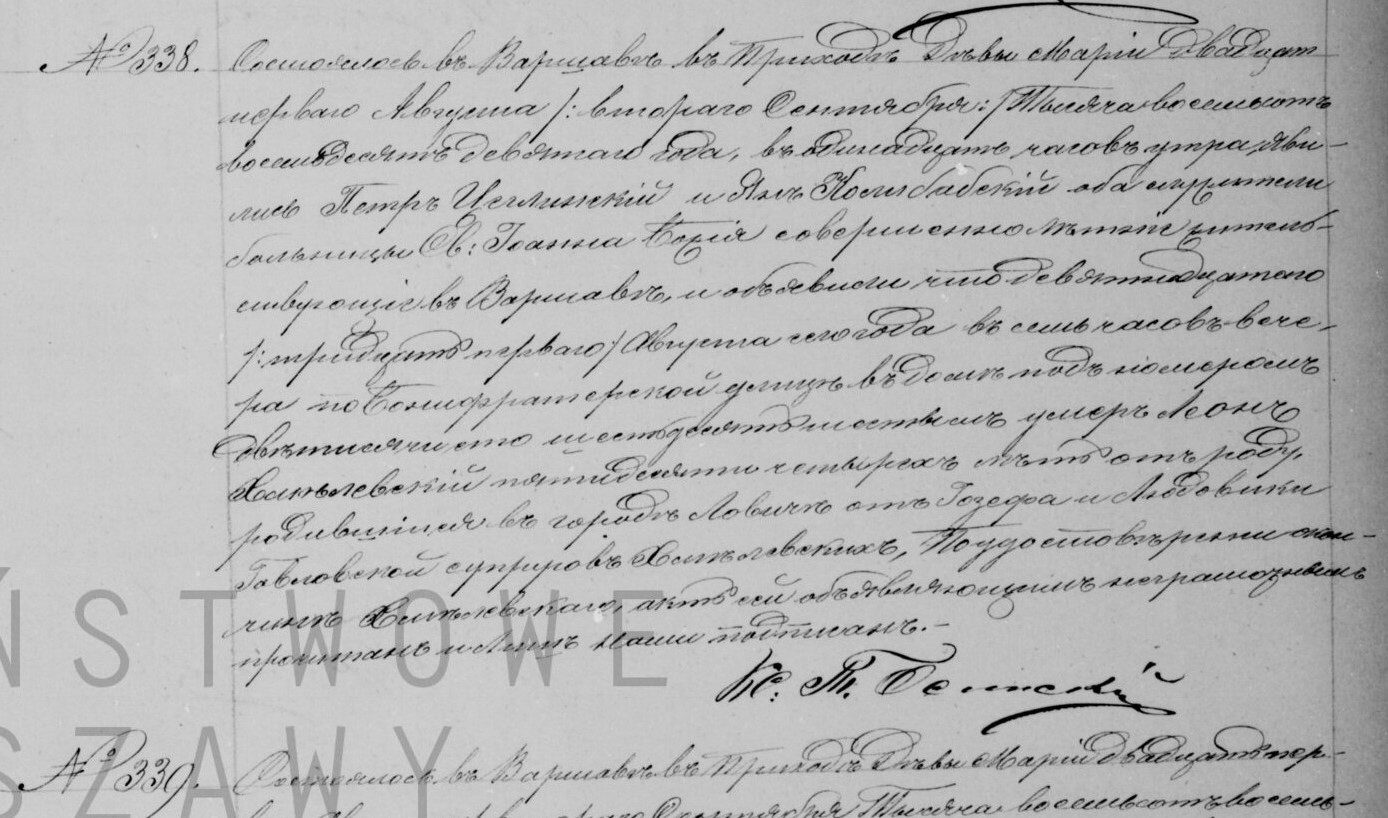 № 338. Состоялось въ Варшавѣ въ Приходѣ Дѣвы Маріи двадцат
перваго Августа /: втораго Сентября :/ Тысяча восемьсотъ
восемьдесятъ девятаго года, въ одинадцать часовъ утра, яви-
лись Петръ и Янъ оба служители
больницы Св: Іоанна Божія совершеннолѣтніе жительст-
ствующіе въ Варшавѣ, и объявили что девятнадцатаго
/: тридцать перваго / Августа сего года въ семь часовъ вече-
ра по Бонифратерской улицѣ въ домѣ подъ номеромъ
двѣ тысячи сто шестьдесятъ шестымъ умеръ Леонъ
Хмѣлевскій пятидесяти четырехъ лѣтъ отъ роду
родившійся въ городѣ Ловичѣ отъ Іозефа и Людовики
супруговъ Хмѣлевскихъ, По удостовѣреніи о кон-
чинѣ Хмѣлевскаго, актъ сей объявляющимъ неграмотнымъ
прочитанъ и Нами подписанъ.-
Кс. Т.
№ 339. Состоялось въ Варшавѣ въ Приходѣ Дѣвы Маріи двадцать пер-
Сентября Тысяча восемьсотъ восемь-
ŃSTWOWE
SZAWY